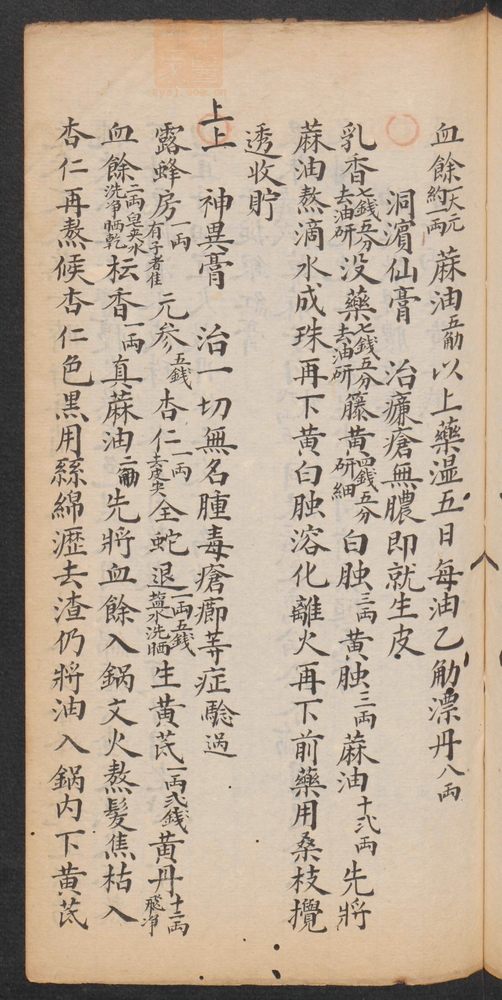 血餘一大元約一両 蔴油五觔以上藥温五日每油乙觔漂丹八両
洞濱仙膏 治臁瘡無膿即就生皮
乳香七錢五分去油研没藥七錢五分去油研籐黄四錢五分研細白䖝三両黄䖝三両蔴油十弍両先將
蔴油熬滴水成珠再下黄白䖝溶化離火再下前藥用桑枝攪
透收貯
上上 神異膏 治一切無名腫毒瘡癤䓁症騐過
露蜂房一両有子者佳 元参五錢 杏仁一両去皮尖全蛇退一両五錢盐水洗晒生黄芪一両弍錢黄丹十二両飛净
血餘二両皂夾水洗净晒乾枟香一両真蔴油二觔先將血餘入鍋文火熬髮焦枯入
杏仁再熬候杏仁色黑用絲綿瀝去渣仍將油入鍋内下黄芪